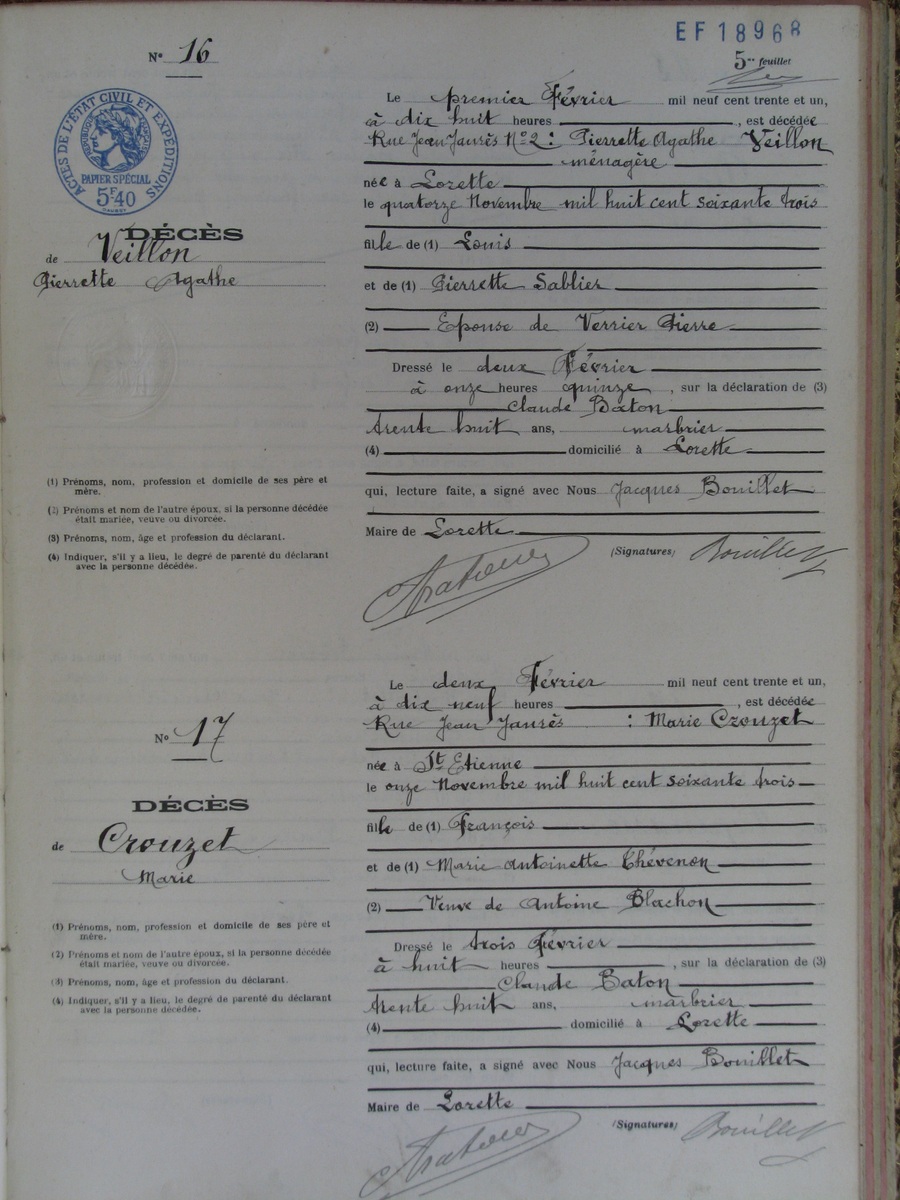 EF 18968
5me feuillet
N° 16
ACTES DE L'ÉTAT CIVIL ET EXPÉDITIONS
RÉPUBLIQUE FRANÇAISE
PAPIER SPÉCIAL
5F40
DÉCÈS
de Veillon
Pierrette Agathe
(1) Prénoms, nom, profession et domicile de ses père et
mère.
(2) Prénoms et nom de l'autre époux, si la personne décédée
était mariée, veuve ou divorcée.
(3) Prénoms, nom, âge et profession du déclarant.
(4) Indiquer, s'il y a lieu, le degré de parenté du déclarant
avec la personne décédée.
Le premier Février mil neuf cent trente et un,
à dix huit heures , est décédée
Rue Jean Jaurès N° 2 : Pierrette Agathe Veillon
ménagère
née à Lorette
le quatorze Novembre mil huit cent soixante trois
fille de (1) Louis
et de (1) Pierrette Sablier
(2) Epouse de Verrier Pierre
Dressé le deux Février
à onze heures quinze , sur la déclaration de (3)
Claude Baton
trente huit ans, marbrier
(4) domicilié à Lorette
qui, lecture faite, a signé avec Nous Jacques Bouillet
Maire de Lorette
(Signatures) Bouillet
N° 17
DÉCÈS
de Crouzet
Marie
(1) Prénoms, nom, profession et domicile de ses père et
mère.
(2) Prénoms et nom de l'autre époux, si la personne décédée
était mariée, veuve ou divorcée.
(3) Prénoms, nom, âge et profession du déclarant.
(4) Indiquer, s'il y a lieu, le degré de parenté du déclarant
avec la personne décédée.
Le deux Février mil neuf cent trente et un,
à dix neuf heures , est décédée
Rue Jean Jaurès : Marie Crouzet
née à St Etienne
le onze Novembre mil huit cent soixante trois
fille de (1) François
et de (1) Marie Antoinette Thévenon
(2) Veuve de Antoine Blachon
Dressé le trois Février
à huit heures , sur la déclaration de (3)
Claude Baton
trente huit ans, marbrier
(4) domicilié à Lorette
qui, lecture faite, a signé avec Nous Jacques Bouillet
Maire de Lorette
(Signatures) Bouillet